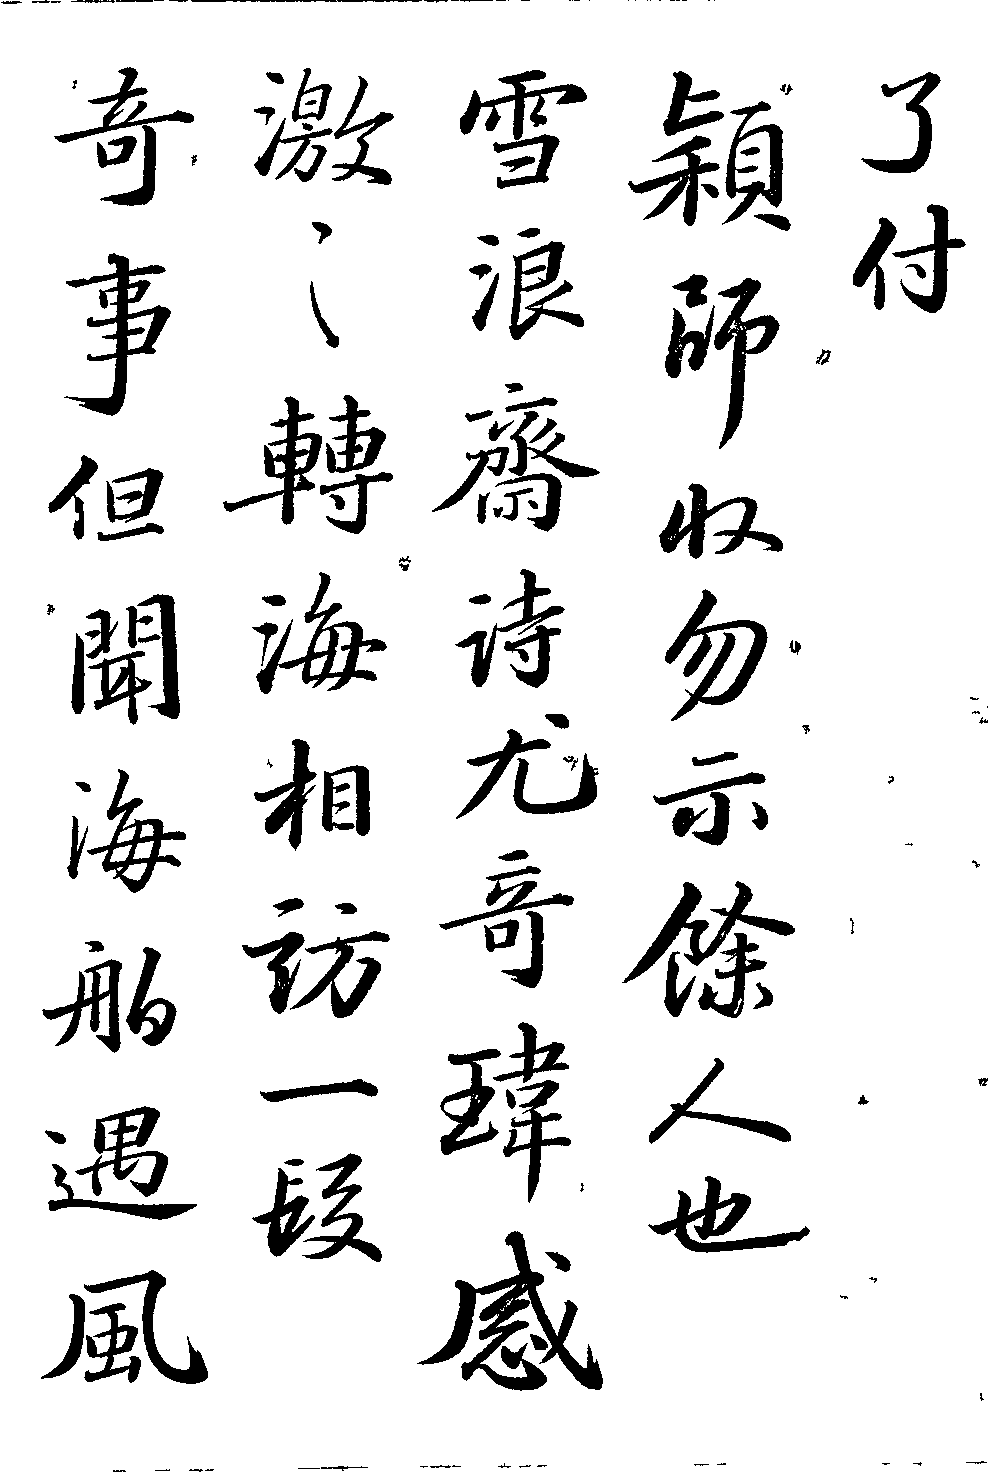 了付
穎師收勿示餘人也
雪浪齋诗尤竒瑋感
激〻轉海相訪一段
竒事但聞海舶遇風